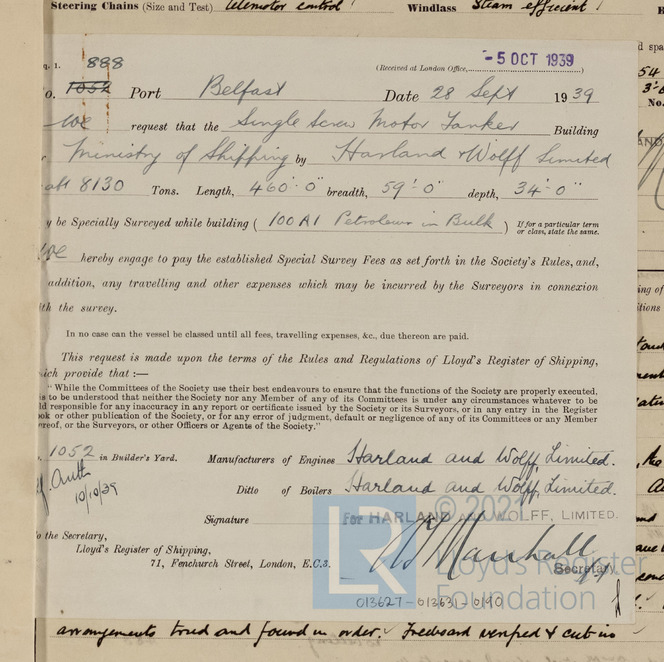 Steering Chains (Size and Test) telemotor control! Windlass Steam efficient!
- 5 OCT 1939
888
(Received at London Office,
o. 1052 Port Belfast Date 28 Sept 1939
We request that the Single Screw Motor Tanker Building
r Ministry of Shipping by Harland & Wolff Limited
abt 8130 Tons. Length, 460'·0" breadth, 59'-0" depth, 34'·0"
y be Specially Surveyed while building ( 100 A1 Petroleum in Bulk ) If for a particular term or class, state the same.
We hereby engage to pay the established Special Survey Fees as set forth in the Society's Rules, and,
addition, any travelling and other expenses which may be incurred by the Surveyors in connexion
th the survey.
In no case can the vessel be classed until all fees, travelling expenses, &c., due thereon are paid.
This request is made upon the terms of the Rules and Regulations of Lloyd's Register of Shipping,
ich provide that :—
" While the Committees of the Society use their best endeavours to ensure that the functions of the Society are properly executed,
is to be understood that neither the Society nor any Member of any of its Committees is under any circumstances whatever to be
ld responsible for any inaccuracy in any report or certificate issued by the Society or its Surveyors, or in any entry in the Register
ok or other publication of the Society, or for any error of judgment, default or negligence of any of its Committees or any Member
ereof, or the Surveyors, or other Officers or Agents of the Society."
1052 in Builder's Yard. Manufacturers of Engines Harland and Wolff, Limited.
Ditto of Boilers Harland and Wolff, Limited.
10/10/39
Signature For HARLAND AND WOLFF, LIMITED.
o the Secretary,
Lloyd's Register of Shipping,
71, Fenchurch Street, London, E.C.3.
Marshall
Secretary
© 2021
LR
Lloyd's Register
Foundation
013627-013631-0190
arrangements tried and found in order. Freeboard verified & cut in